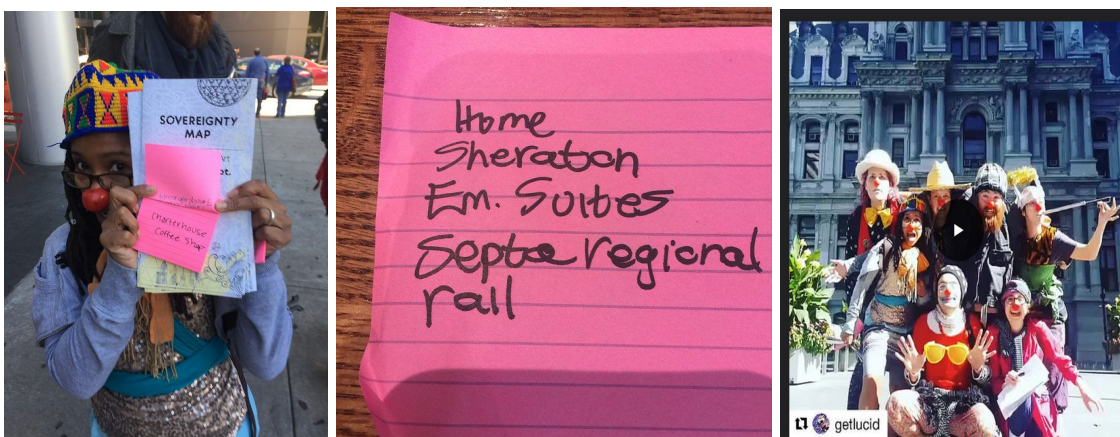 SOVEREIGNTY
MAP
Charterhouse
Coffee Shop
Home
Sheraton
Em. Suites
Septa regional
rail
getlucid